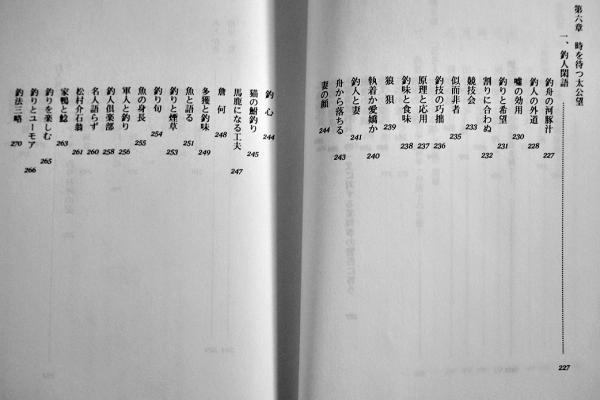 第六章 時を待つ太公望
一、釣人閑語 227
釣舟の河豚汁 227
釣人の外道 228
嘘の効用 230
釣りと希望 231
割りに合わぬ 232
競技会 233
似而非者 235
釣技の巧拙 236
原理と応用 237
釣味と食味 238
狼狽 239
執着か愛嬌か 240
釣人と妻 241
舟から落ちる 243
妻の顔 244
釣心 244
猫の鯛釣り 245
馬鹿になる工夫 247
詹何 248
多獲と釣味 249
魚と語る 251
釣りと煙草 253
釣り旬 254
魚の身長 255
軍人と釣り 256
釣人倶楽部 258
名人語らず 260
松村介石翁 261
家鴨と鯰 263
釣りを楽しむ 265
釣りとユーモア 266
釣法三略 270